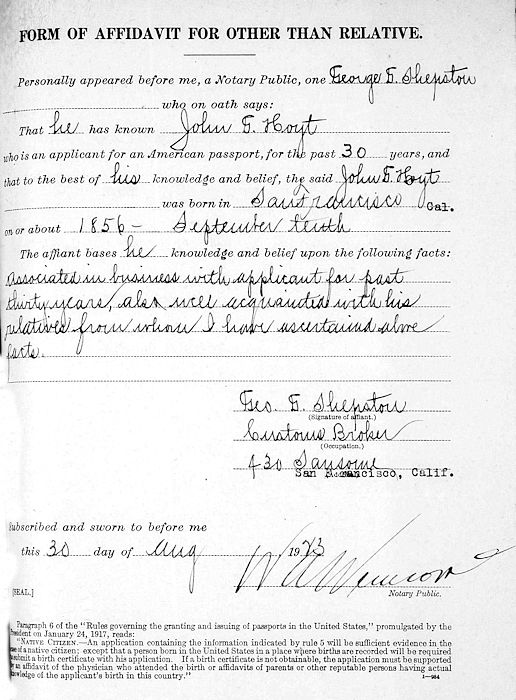 FORM OF AFFIDAVIT FOR OTHER THAN RELATIVE.
Personally appeared before me, a Notary Public, one George E. Shepston
who on oath says:
That he has known John G. Hoyt
who is an applicant for an American passport, for the past 30 years, and
that to the best of his knowledge and belief, the said John G. Hoyt
was born in San Francisco Cal.
on or about 1856 - September tenth
The affiant bases he knowledge and belief upon the following facts:
associated in business with applicant for past
thirty years, also well acquainted with his
relatives from whom I have ascertained above
facts.
Geo. E. Shepston
(Signature of affiant.)
Customs Broker
(Occupation.)
430 Sansome
San Francisco, Calif.
Subscribed and sworn to before me
this 30 day of Aug 1923
[SEAL.] Notary Public.
Paragraph 6 of the "Rules governing the granting and issuing of passports in the United States," promulgated by the
President on January 24, 1917, reads:
"NATIVE CITIZEN.—An application containing the information indicated by rule 5 will be sufficient evidence in the
case of a native citizen; except that a person born in the United States in a place where births are recorded will be required
to submit a birth certificate with his application. If a birth certificate is not obtainable, the application must be supported
by an affidavit of the physician who attended the birth or affidavits of parents or other reputable persons having actual
knowledge of the applicant's birth in this country."
1—984